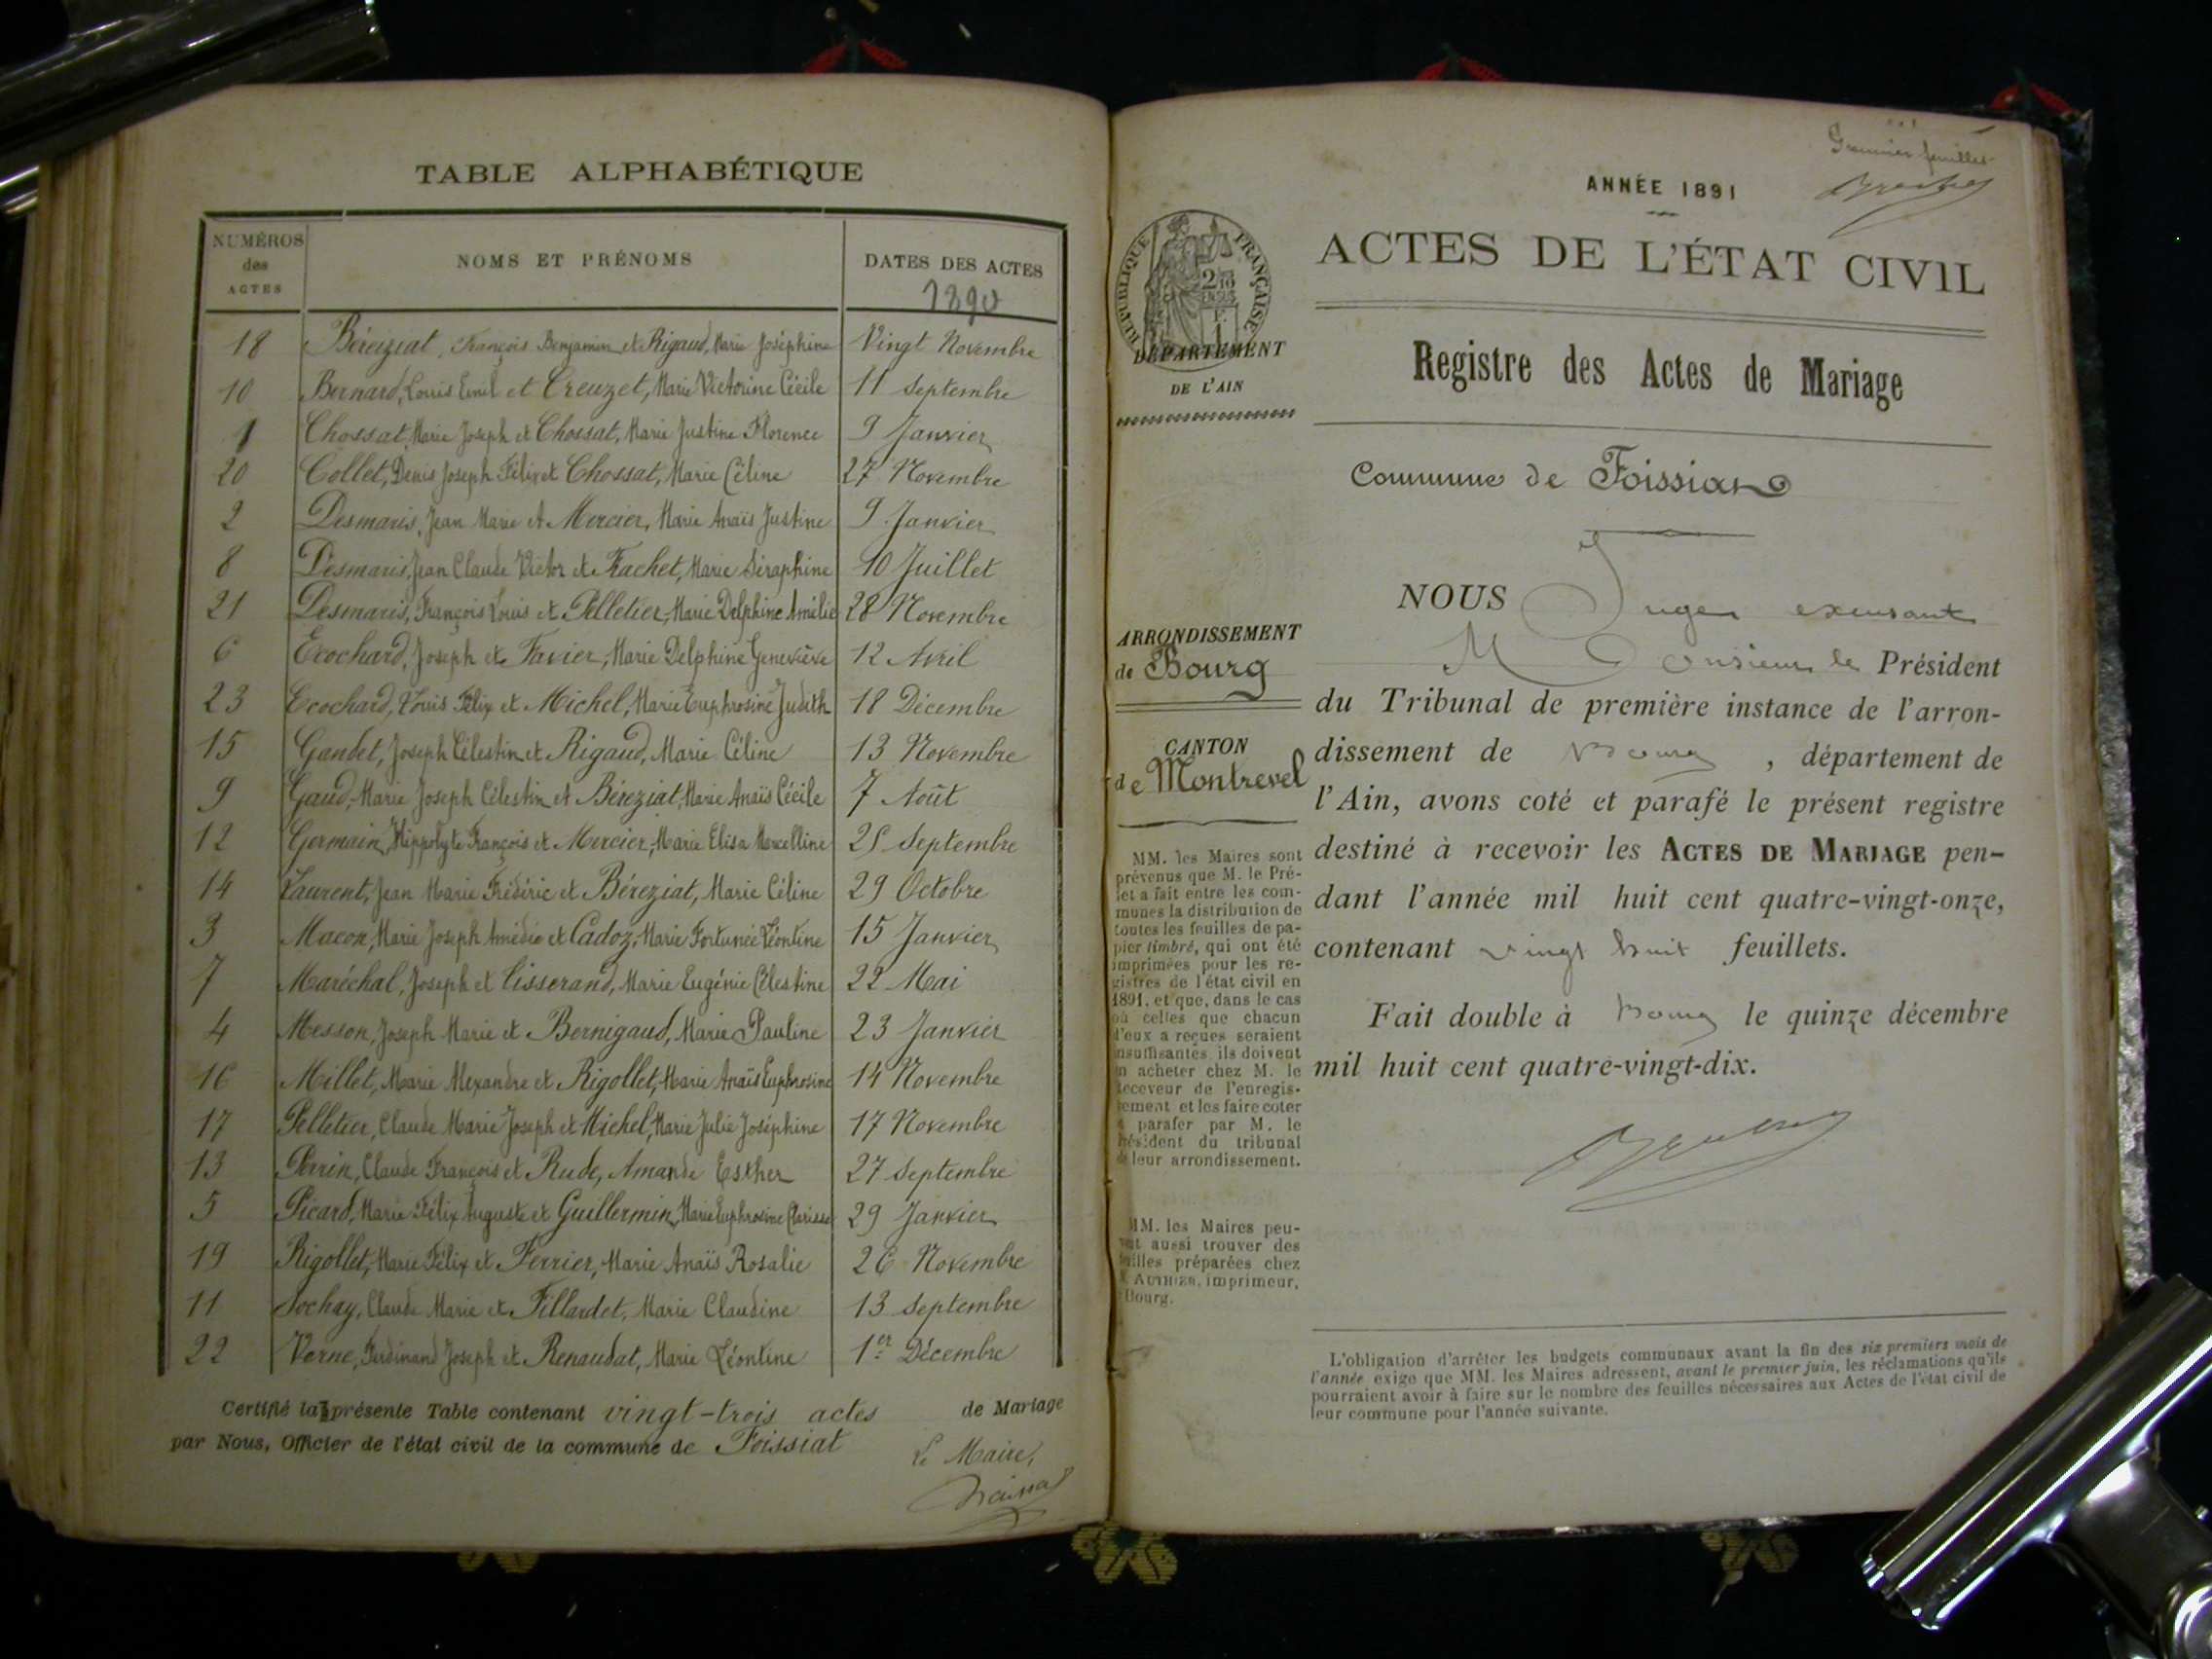 TABLE ALPHABÉTIQUE
NUMÉROS des ACTES
NOMS ET PRÉNOMS
DATES DES ACTES
1890
18 Béréziat, François Benjamin et Rigaud, Marie Joséphine Vingt Novembre
10 Bernard, Louis Emil et Creuzet, Marie Victorine Cécile 11 Septembre
1 Chossat, Marie Joseph et Chossat, Marie Justine Florence 9 Janvier
20 Collet, Denis Joseph Félix et Chossat, Marie Céline 27 Novembre
2 Desmaris, Jean Marie et Mercier, Marie Anaïs Justine 9 Janvier
8 Desmaris, Jean Claude Victor et Frachet, Marie Séraphine 10 Juillet
21 Desmaris, François Louis et Pelletier, Marie Delphine Amélie 28 Novembre
6 Ecochard, Joseph et Favier, Marie Delphine Geneviève 12 Avril
23 Ecochard, Louis Félix et Michel, Marie Euphrosine Judith 18 Décembre
15 Gandet, Joseph Célestin et Rigaud, Marie Céline 13 Novembre
9 Gaud, Marie Joseph Célestin et Béreziat, Marie Anaïs Cécile 7 Août
12 Germain, Hippolyte François et Mercier, Marie Elisa Marcelline 25 Septembre
14 Laurent, Jean Marie Frédéric et Béreziat, Marie Céline 29 Octobre
3 Macon, Marie Joseph Amédée et Cadoz, Marie Fortunée Léontine 15 Janvier
7 Maréchal, Joseph et Tisserand, Marie Eugénie Célestine 22 Mai
4 Messon, Joseph Marie et Bernigaud, Marie Pauline 23 Janvier
16 Millet, Marie Alexandre et Rigollet, Marie Anaïs Euphrosine 14 Novembre
17 Pelletier, Claude Marie Joseph et Michel, Marie Julie Joséphine 17 Novembre
13 Perrin, Claude François et Rude, Amande Esther 27 Septembre
5 Picard, Marie Félix Auguste et Guillermin, Marie Euphrosine Clarisse 29 Janvier
19 Rigollet, Marie Félix et Perrier, Marie Anaïs Rosalie 26 Novembre
11 Sochay, Claude Marie et Fillardet, Marie Claudine 13 Septembre
22 Verne, Ferdinand Joseph et Renaudat, Marie Léontine 1er Décembre
Certifié la présente Table contenant vingt-trois actes de Mariage
par Nous, Officier de l'état civil de la commune de Foissiat
Le Maire,
feuillet
ANNÉE 1891
ACTES DE L'ÉTAT CIVIL
RÉPUBLIQUE FRANÇAISE
DÉPARTEMENT
DE L'AIN
Registre des Actes de Mariage
Commune de Foissiat
ARRONDISSEMENT
de Bourg
CANTON
de Montrevel
MM. les Maires sont
prévenus que M. le Pré-
fet a fait entre les com-
munes la distribution de
toutes les feuilles de pa-
pier timbré, qui ont été
imprimées pour les re-
gistres de l'état civil en
1891, et que, dans le cas
où celles que chacun
d'eux a reçues seraient
insuffisantes ils doivent
en acheter chez M. le
Receveur de l'enregis-
trement et les faire coter
à parafer par M. le
Président du tribunal
de leur arrondissement.
MM. les Maires peu-
vent aussi trouver des
feuilles préparées chez
M. AUTHIER, imprimeur,
Bourg.
NOUS Juge excusant
Monsieur le Président
du Tribunal de première instance de l'arron-
dissement de Bourg, département de
l'Ain, avons coté et parafé le présent registre
destiné à recevoir les ACTES DE MARIAGE pen-
dant l'année mil huit cent quatre-vingt-onze,
contenant vingt huit feuillets.
Fait double à Bourg le quinze décembre
mil huit cent quatre-vingt-dix.
L'obligation d'arrêter les budgets communaux avant la fin des six premiers mois de
l'année exige que MM. les Maires adressent, avant le premier juin, les réclamations qu'ils
pourraient avoir à faire sur le nombre des feuilles nécessaires aux Actes de l'état civil de
leur commune pour l'année suivante.